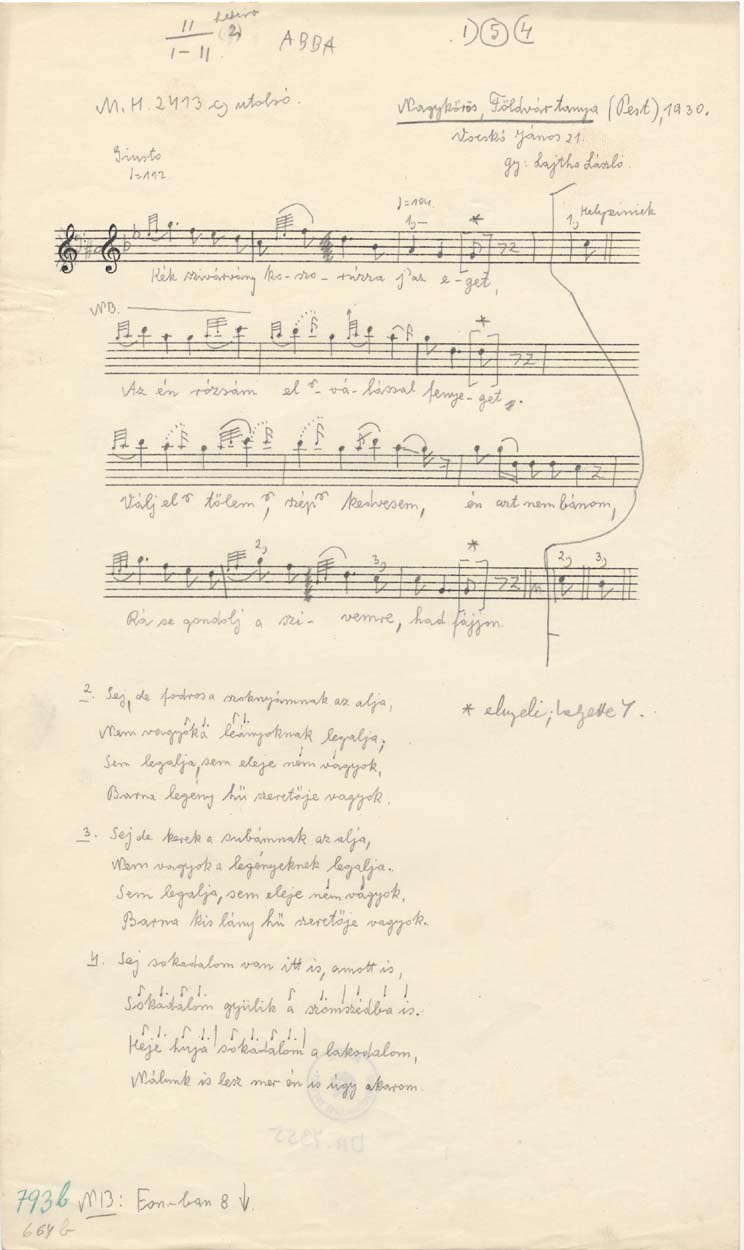 II hetero
I–II (2)
ABBA
1) (5) (4
M.H. 2413 c) utolsó.
Nagykőrös, Földvár tanya (Pest), 1930.
Vocskó János 21.
gy: Lajtha László.
Giusto
♩=112
♩=104
1,
*
1, Helyszíniek
Kék szivárvány ko-szo-rúzza j'az e-get,
NB.
*
Az én rózsám el -vá-lással fenye-get.
Válj el tőlem, szép kedvesem, én azt nem bánom,
2, 3, * 2, 3,
Rá se gondolj a szi-vemre, had fájjon.
2. Sej, de fodros a szoknyámnak az alja,
Nem vagyok a leányoknak legalja,
Sem legalja, sem eleje nem vagyok,
Barna legény hű szeretője vagyok.
* elnyeli;
3. Sej de kerek a subámnak az alja,
Nem vagyok a legényeknek legalja.
Sem legalja, sem eleje nem vagyok,
Barna kis lány hű szeretője vagyok.
4. Sej sokadalom van itt is, amott is,
Sokadalom gyülik a szomszédba is.
Héje huja sokadalom a lakodalom,
Nálunk is lesz mer én is úgy akarom.
793b NB: Fon-ban 8 ↓.
664 b